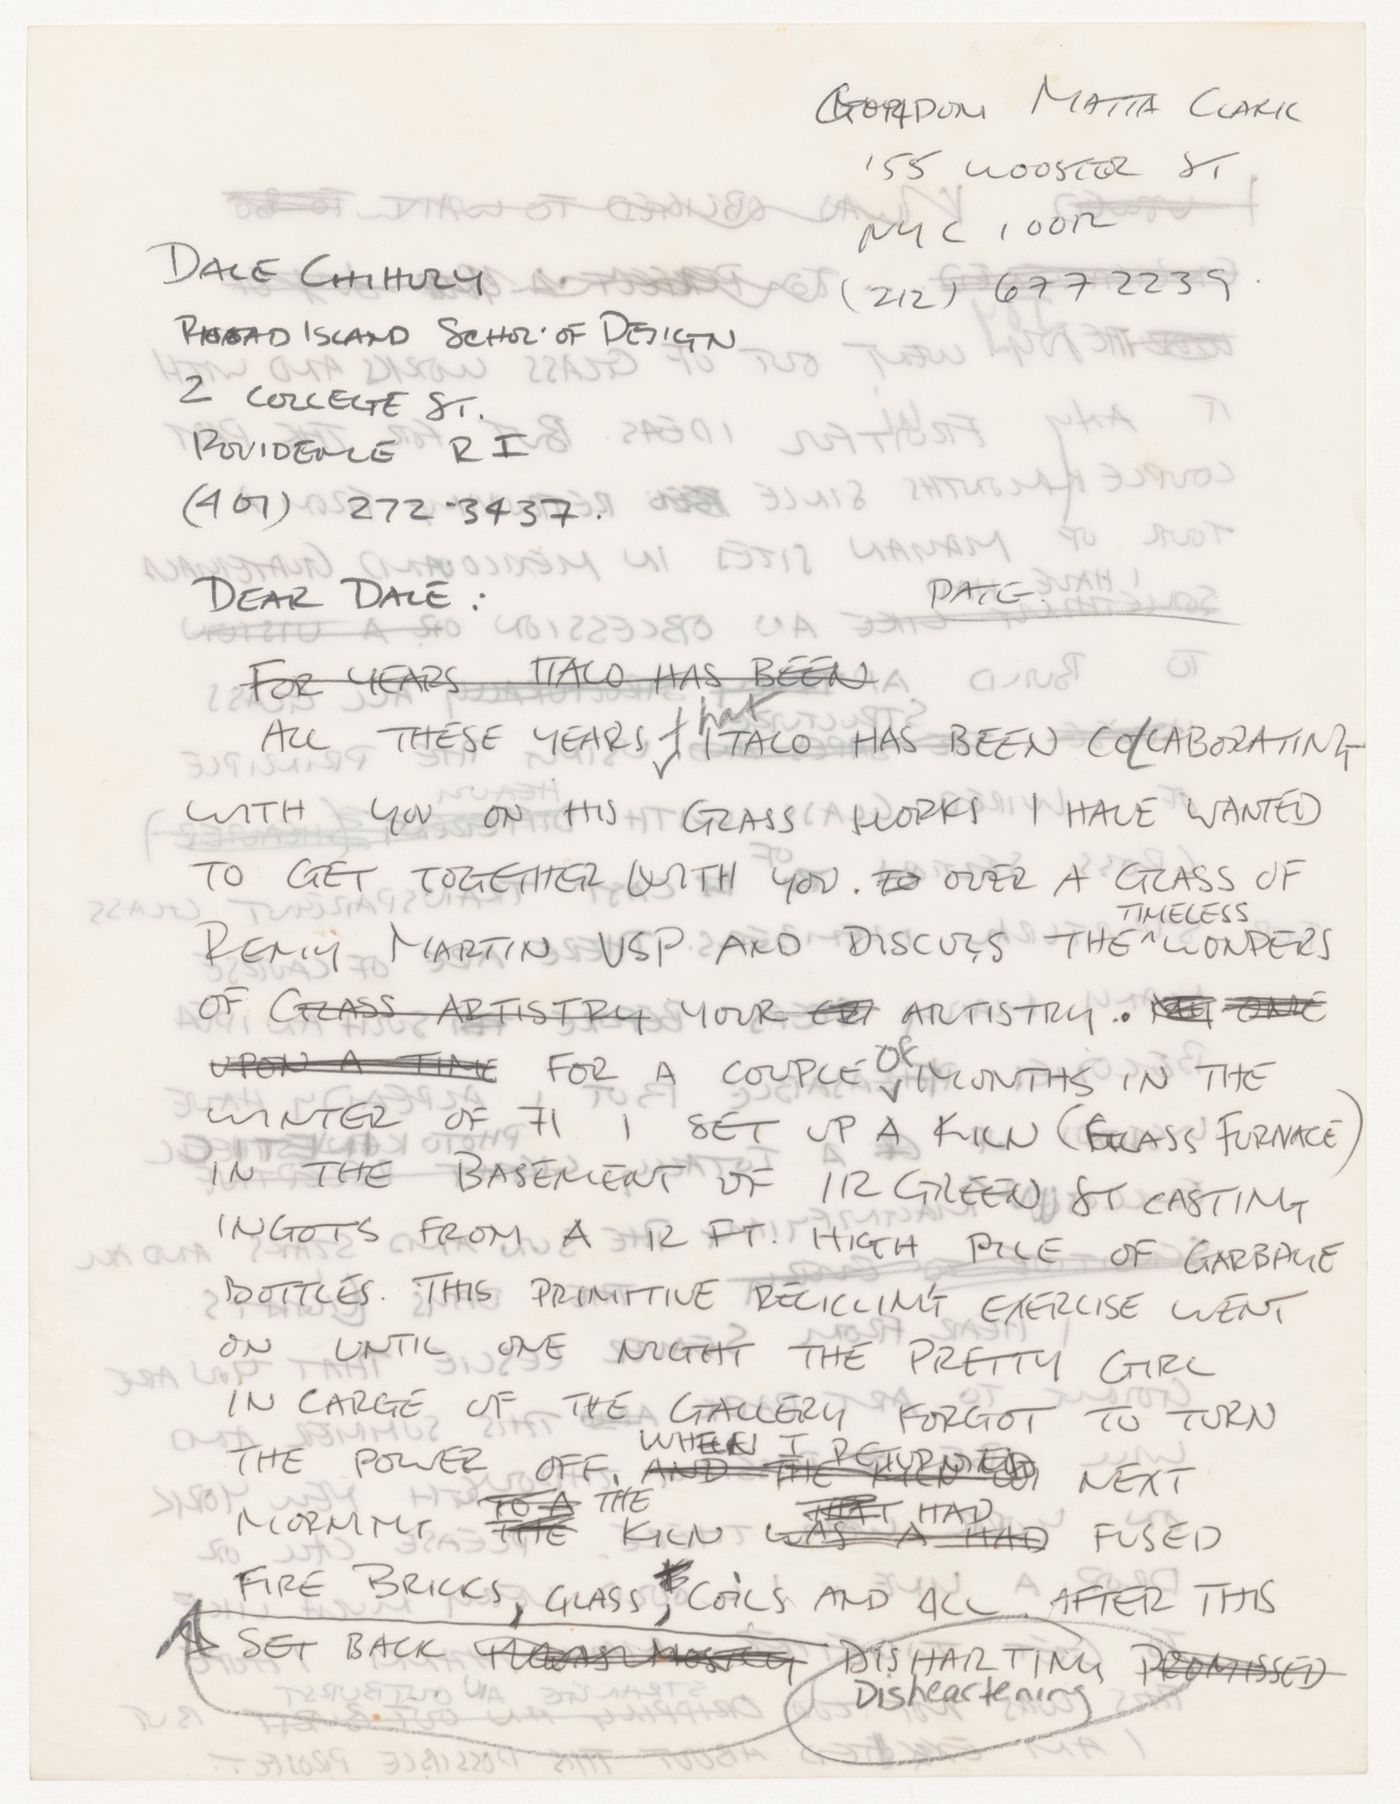 GORDON MATTA CLARK
155 WOOSTER ST.
NYC 10012
(212) 677 2239.
DALE CHIHULY
RHOAD ISLAND SCHOL OF DESIGN
2 COLLEGE ST.
POVIDENCE R I
(401) 272-3437.
DEAR DALE: DATE:
FOR YEARS ITALO HAS BEEN
ALL THESE YEARS that ITALO HAS BEEN COLLABORATING
WITH YOU ON HIS GLASS WORKS I HAVE WANTED
TO GET TOGETHER WITH YOU. TO OVER A GLASS OF
TIMELESS
REMY MARTIN VSP AND DISCUSS THE ^ WONDERS
OF GLASS ARTISTRY YOUR ARTISTRY. ONE
UPON A TIME FOR A COUPLE OF MONTHS IN THE
WINTER OF 71 I SET UP A KILN (GLASS FURNACE)
IN THE BASEMENT OF 112 GREEN ST CASTING
INGOTS FROM A 12 FT. HIGH PILE OF GARBAGE
BOTTLES. THIS PRIMITIVE RECICLING EXERCISE WENT
ON UNTIL ONE NIGHT THE PRETTY GIRL
IN CARGE OF THE GALLERY FORGOT TO TURN
WHEN I RETURNED
THE POWER OFF. AND THE KILN NEXT
TO A THE THAT HAD
MORNING THE KILN WAS A HAD FUSED
FIRE BRICKS, GLASS, COILS AND ALL. AFTER THIS
SET BACK DISHARTING PROMISSED
Disheartening